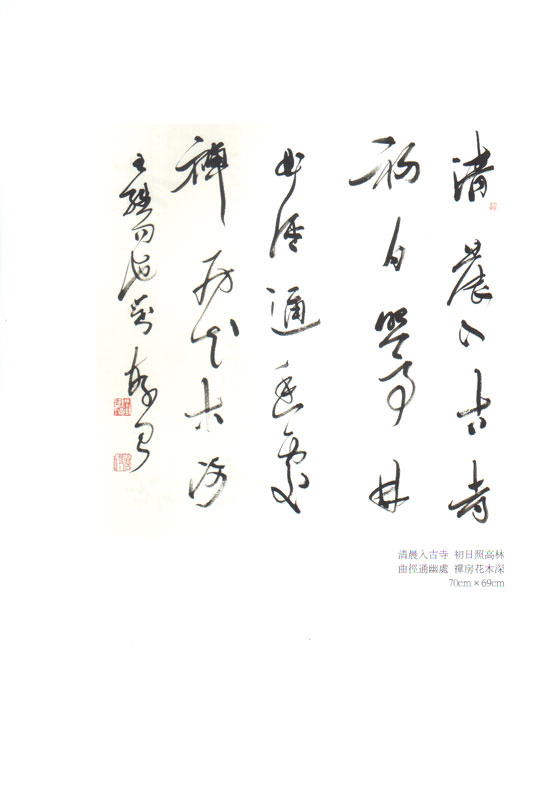 清晨入古寺
初日照高林
曲徑通幽處
禪房花木深
清晨入古寺 初日照高林
曲徑通幽處 禪房花木深
70cm × 69cm